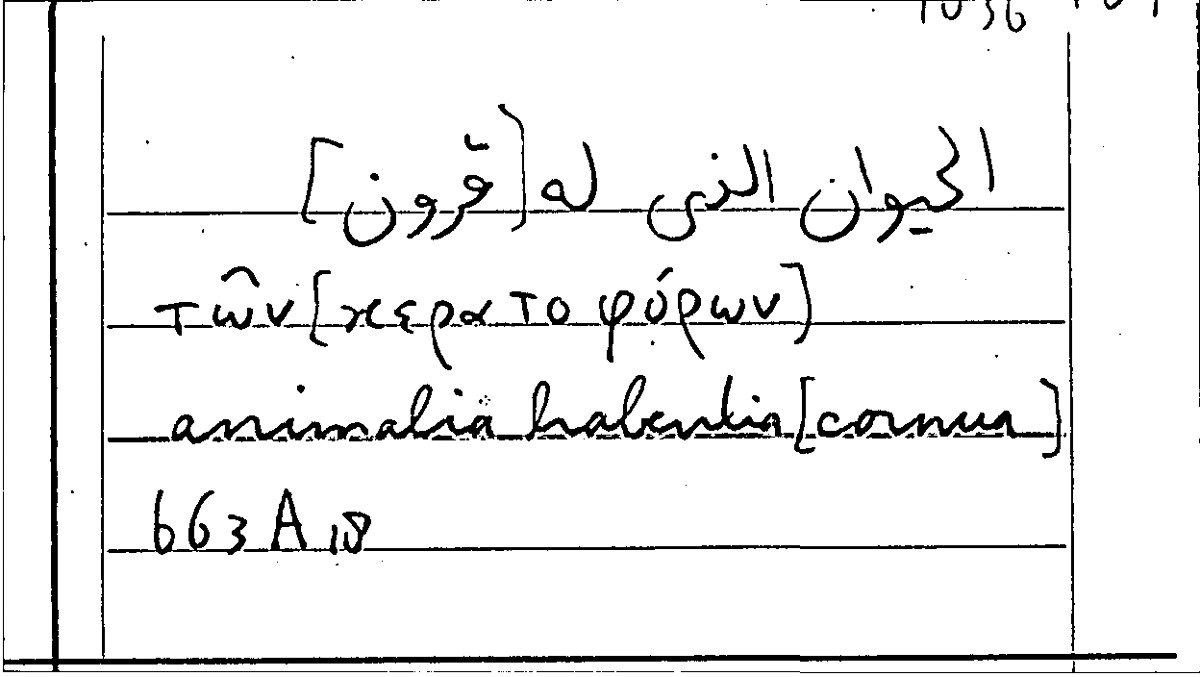 الحيوان الذى له [قرون]
τῶν [κερατοφόρων]
animalia habentia [cornua]
663 A 18